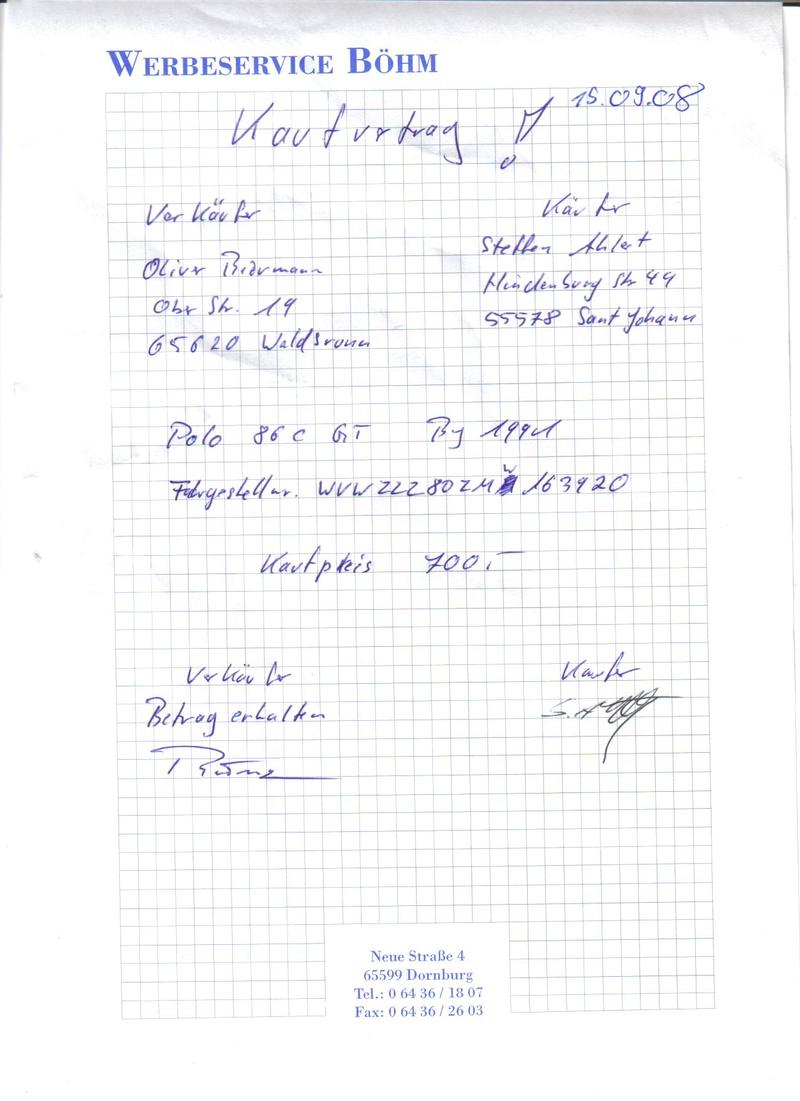 WERBESERVICE BÖHM
15.09.08
Kaufvrtrag !
Verkäufer
Käufer
Oliver
Steffen Ahlert
Obr Str. 19
Hindenburg Str 44
65620 Waldbrunn
55578 Sant Johann
Polo 86c GT Bj 1991
Fahrgestellnr. WVWZZZ80ZM 163920
Kaufpreis 700,-
Verkäufer
Kaufer
Betrag erhalten
Neue Straße 4
65599 Dornburg
Tel.: 0 64 36 / 18 07
Fax: 0 64 36 / 26 03